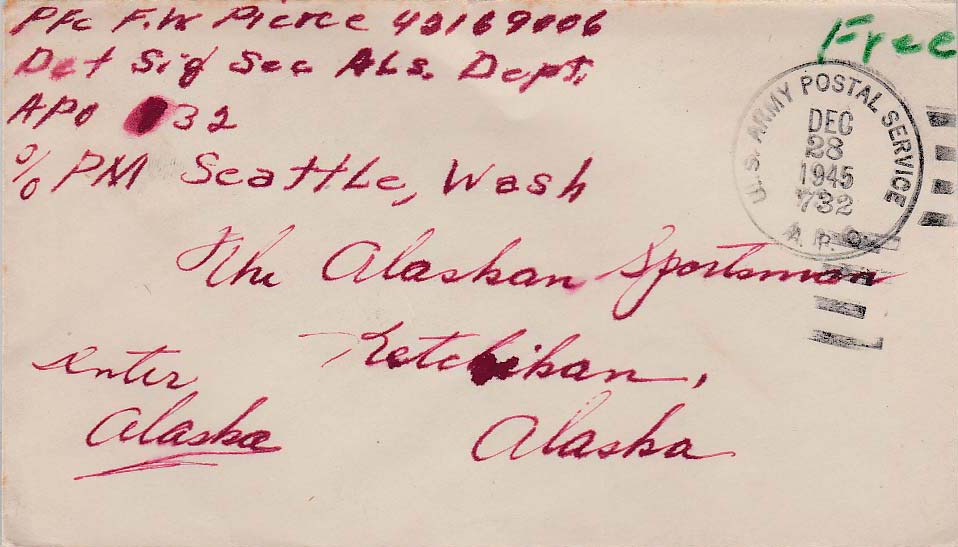 Pfc F.W Pierce 42169006
Free
Det Sig Sec Als. Dept.
APO 732
c/o PM Seattle, Wash
U.S. ARMY POSTAL SERVICE
DEC
28
1945
732
A.P.O.
The Alaskan Sportsman
Ketchikan,
Alaska
Inter
Alaska